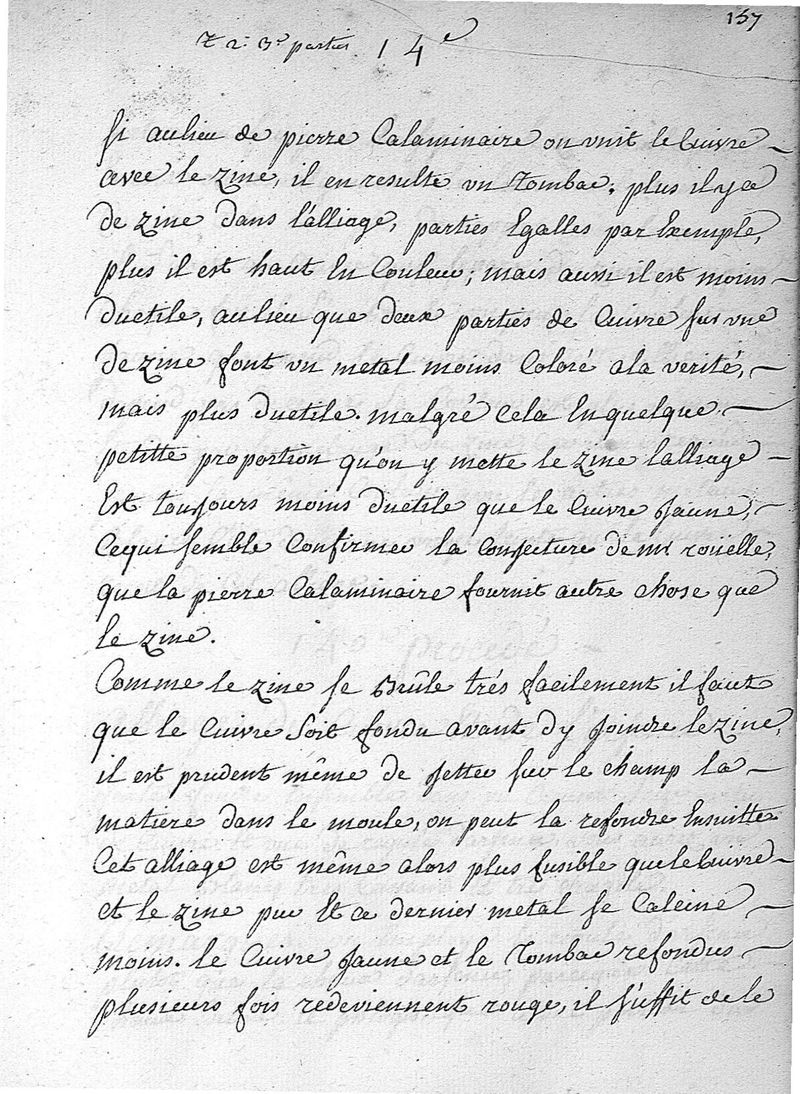 157
T 2. 3e partie 14e
Si aulieu de pierre Calaminaire on unit le Cuivre
avec le zinc, il en resulte un Tombac; plus il y a
de zinc dans l'alliage, parties Egalles par Exemple,
plus il est haut En Couleur; mais aussi il est moins
ductile, aulieu que deux parties de Cuivre sur une
de zinc font un metal moins Coloré a la verité,
mais plus ductile. malgré Cela En quelque
petitte proportion qu'on y mette le zinc l'alliage
Est toujours moins ductile que le Cuivre Jaune,
Cequi semble Confirmer la Conjecture de mr roüelle,
que la pierre Calaminaire fournit autre chose que
le zinc.
Comme le zinc se Brûle trés facilement il faut
que le Cuivre Soit fondu avant dy Joindre le zinc,
il est prudent même de Jetter sur le champ la
matiere dans le moule, on peut la refondre Ensuitte
Cet alliage est même alors plus fusible que le Cuivre
et le zinc pur Et ce dernier metal se Calcine
moins. le Cuivre Jaune et le Tombac refondus
plusieurs fois redeviennent rouge, il suffit de le